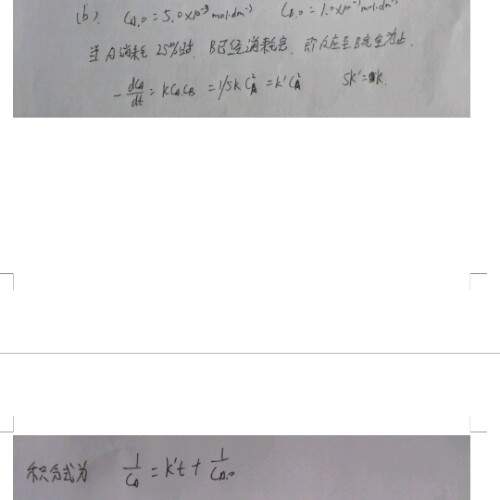 (b). C_{A,0} = 5.0×10⁻³ mol·dm⁻³ C_{B,0} = 1.0×10⁻³ mol·dm⁻³
当A消耗25%时, B已经消耗完, 即反应至B完全为止
-dC_A/dt = kC_A C_B = 1/5k C_A² = k'C_A² 5k'=k.
积分式为 1/C_A = k't + 1/C_{A,0}